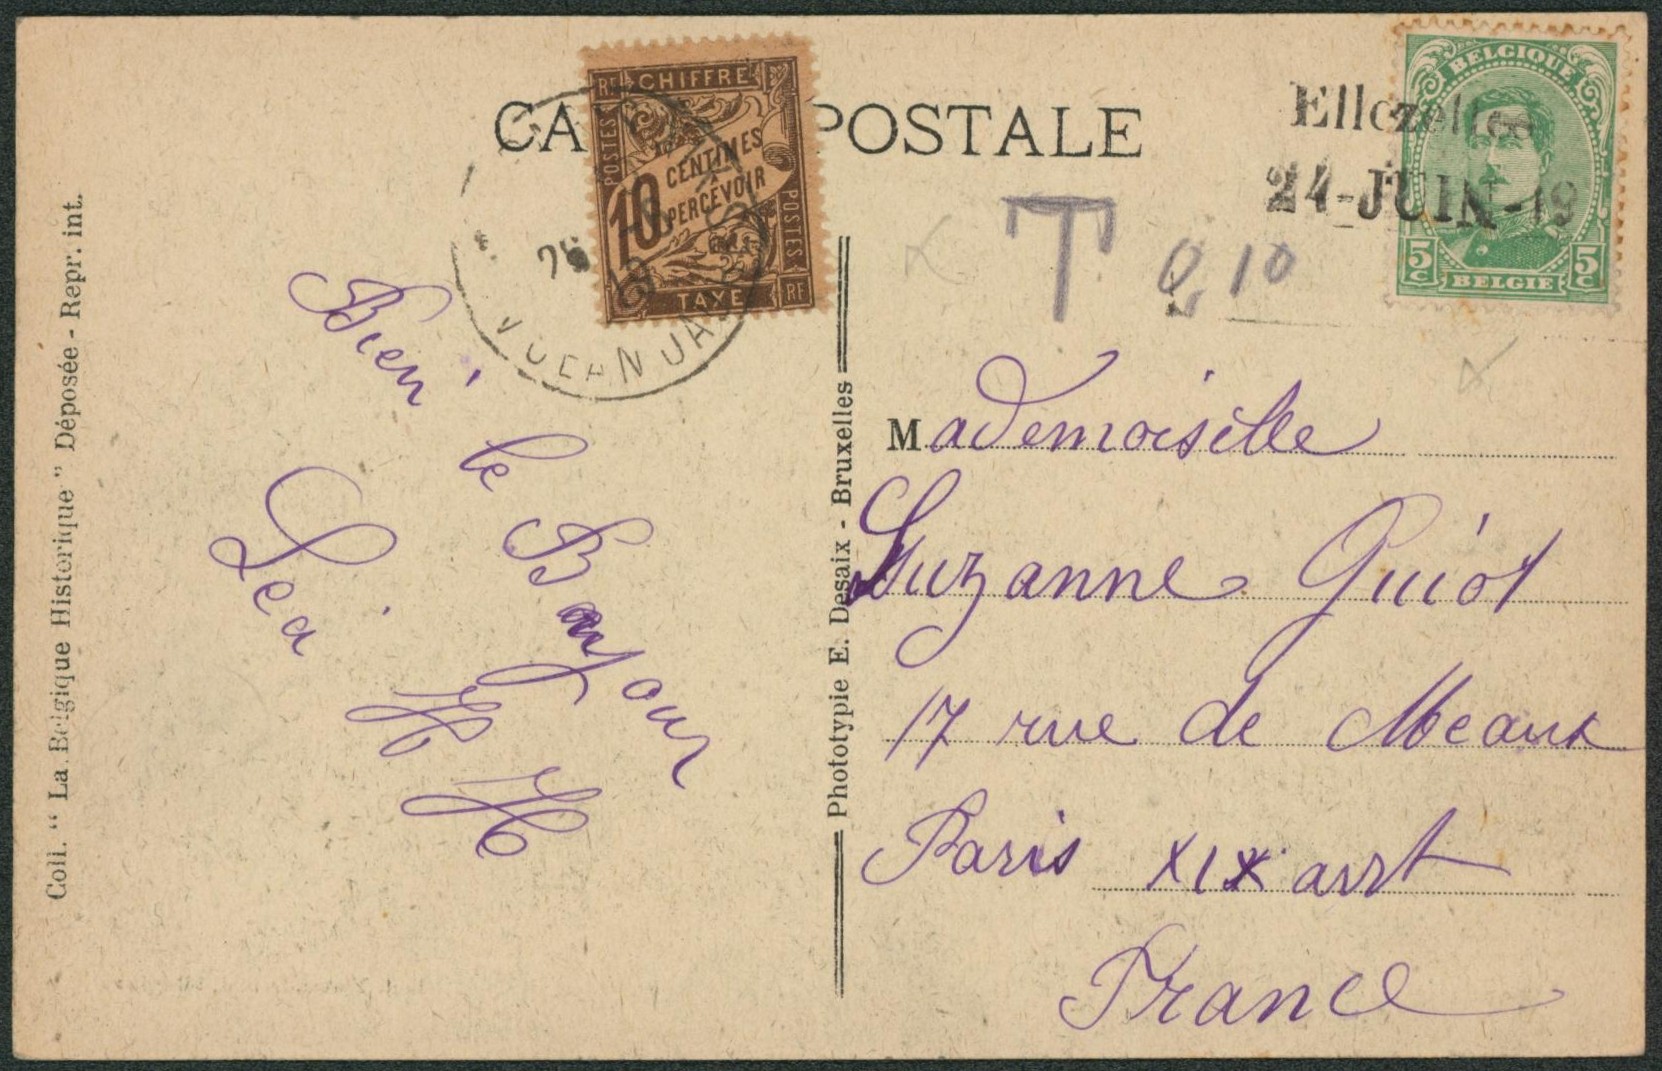 CARTE POSTALE
RF CHIFFRE
POSTES
10 CENTIMES
À PERCEVOIR
POSTES
TAXE RF
BELGIQUE
5c BELGIE 5c
Ellezelles
24-JUIN-19
T 0,10
Bien le Bonjour
Léa
H H
Mademoiselle
Suzanne Guiot
17 rue de Meaux
Paris XIX arrt
France
Coll. “ La Belgique Historique ” Déposée - Repr. int.
Phototypie E. Desaix - Bruxelles